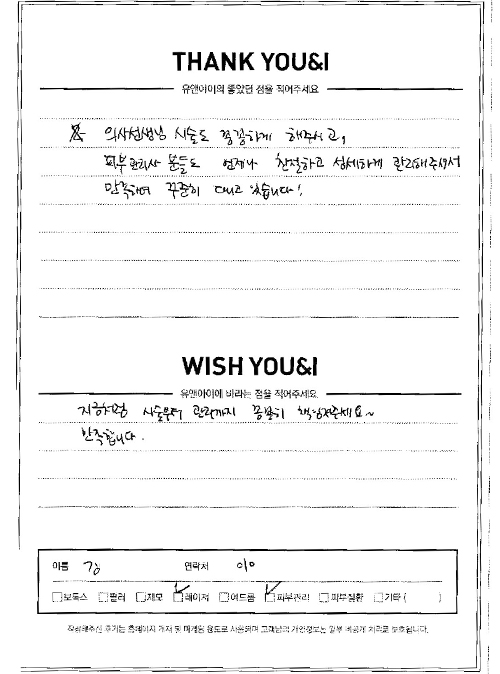 THANK YOU&I
유앤아이의 좋았던 점을 적어주세요
의사선생님 시술도 꼼꼼하게 해주시고,
피부관리사 분들도 언제나 친절하고 섬세하게 관리해주셔서
만족하며 꾸준히 다니고 있습니다!
WISH YOU&I
유앤아이에 바라는 점을 적어주세요.
지금처럼 시술부터 관리까지 꼼꼼히 책임져주세요~
만족합니다.
이름 김 연락처 010
보톡스 필러 제모 레이저 여드름 피부관리 피부질환 기타 ( )
작성해주신 후기는 홈페이지 게재 및 마케팅 용도로 사용되며 고객님의 개인정보는 일부 비공개 처리로 보호됩니다.